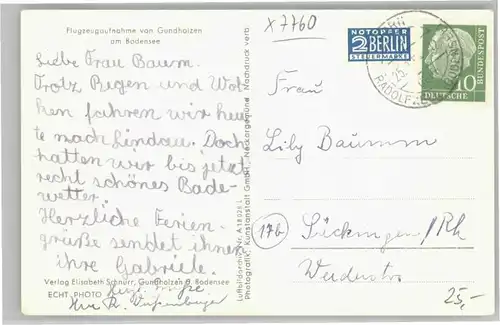 Flugzeugaufnahme von Gundholzen
am Bodensee
x 7760
NOTOPFER
2 BERLIN
STEUERMARKE
RADOLFZELL
10
DEUTSCHE
BUNDESPOST
Liebe Frau Baum.
Trotz Regen und Wol-
ken fahren wir heu-
te nach Lindau. Doch
hatten wir bis jetzt
recht schönes Bade-
wetter.
Herzliche Ferien-
grüße sendet ihnen
ihre Gabriele.
Verlag Elisabeth Schnurr, Gundholzen a. Bodensee
ECHT PHOTO
Luftbildarchiv Nr.
Photografie, Kunstanstalt GmbH., Neckargemünd Nachdruck verb.
Frau
Lily Baumm
17b
Säckingen/Rh
25,-